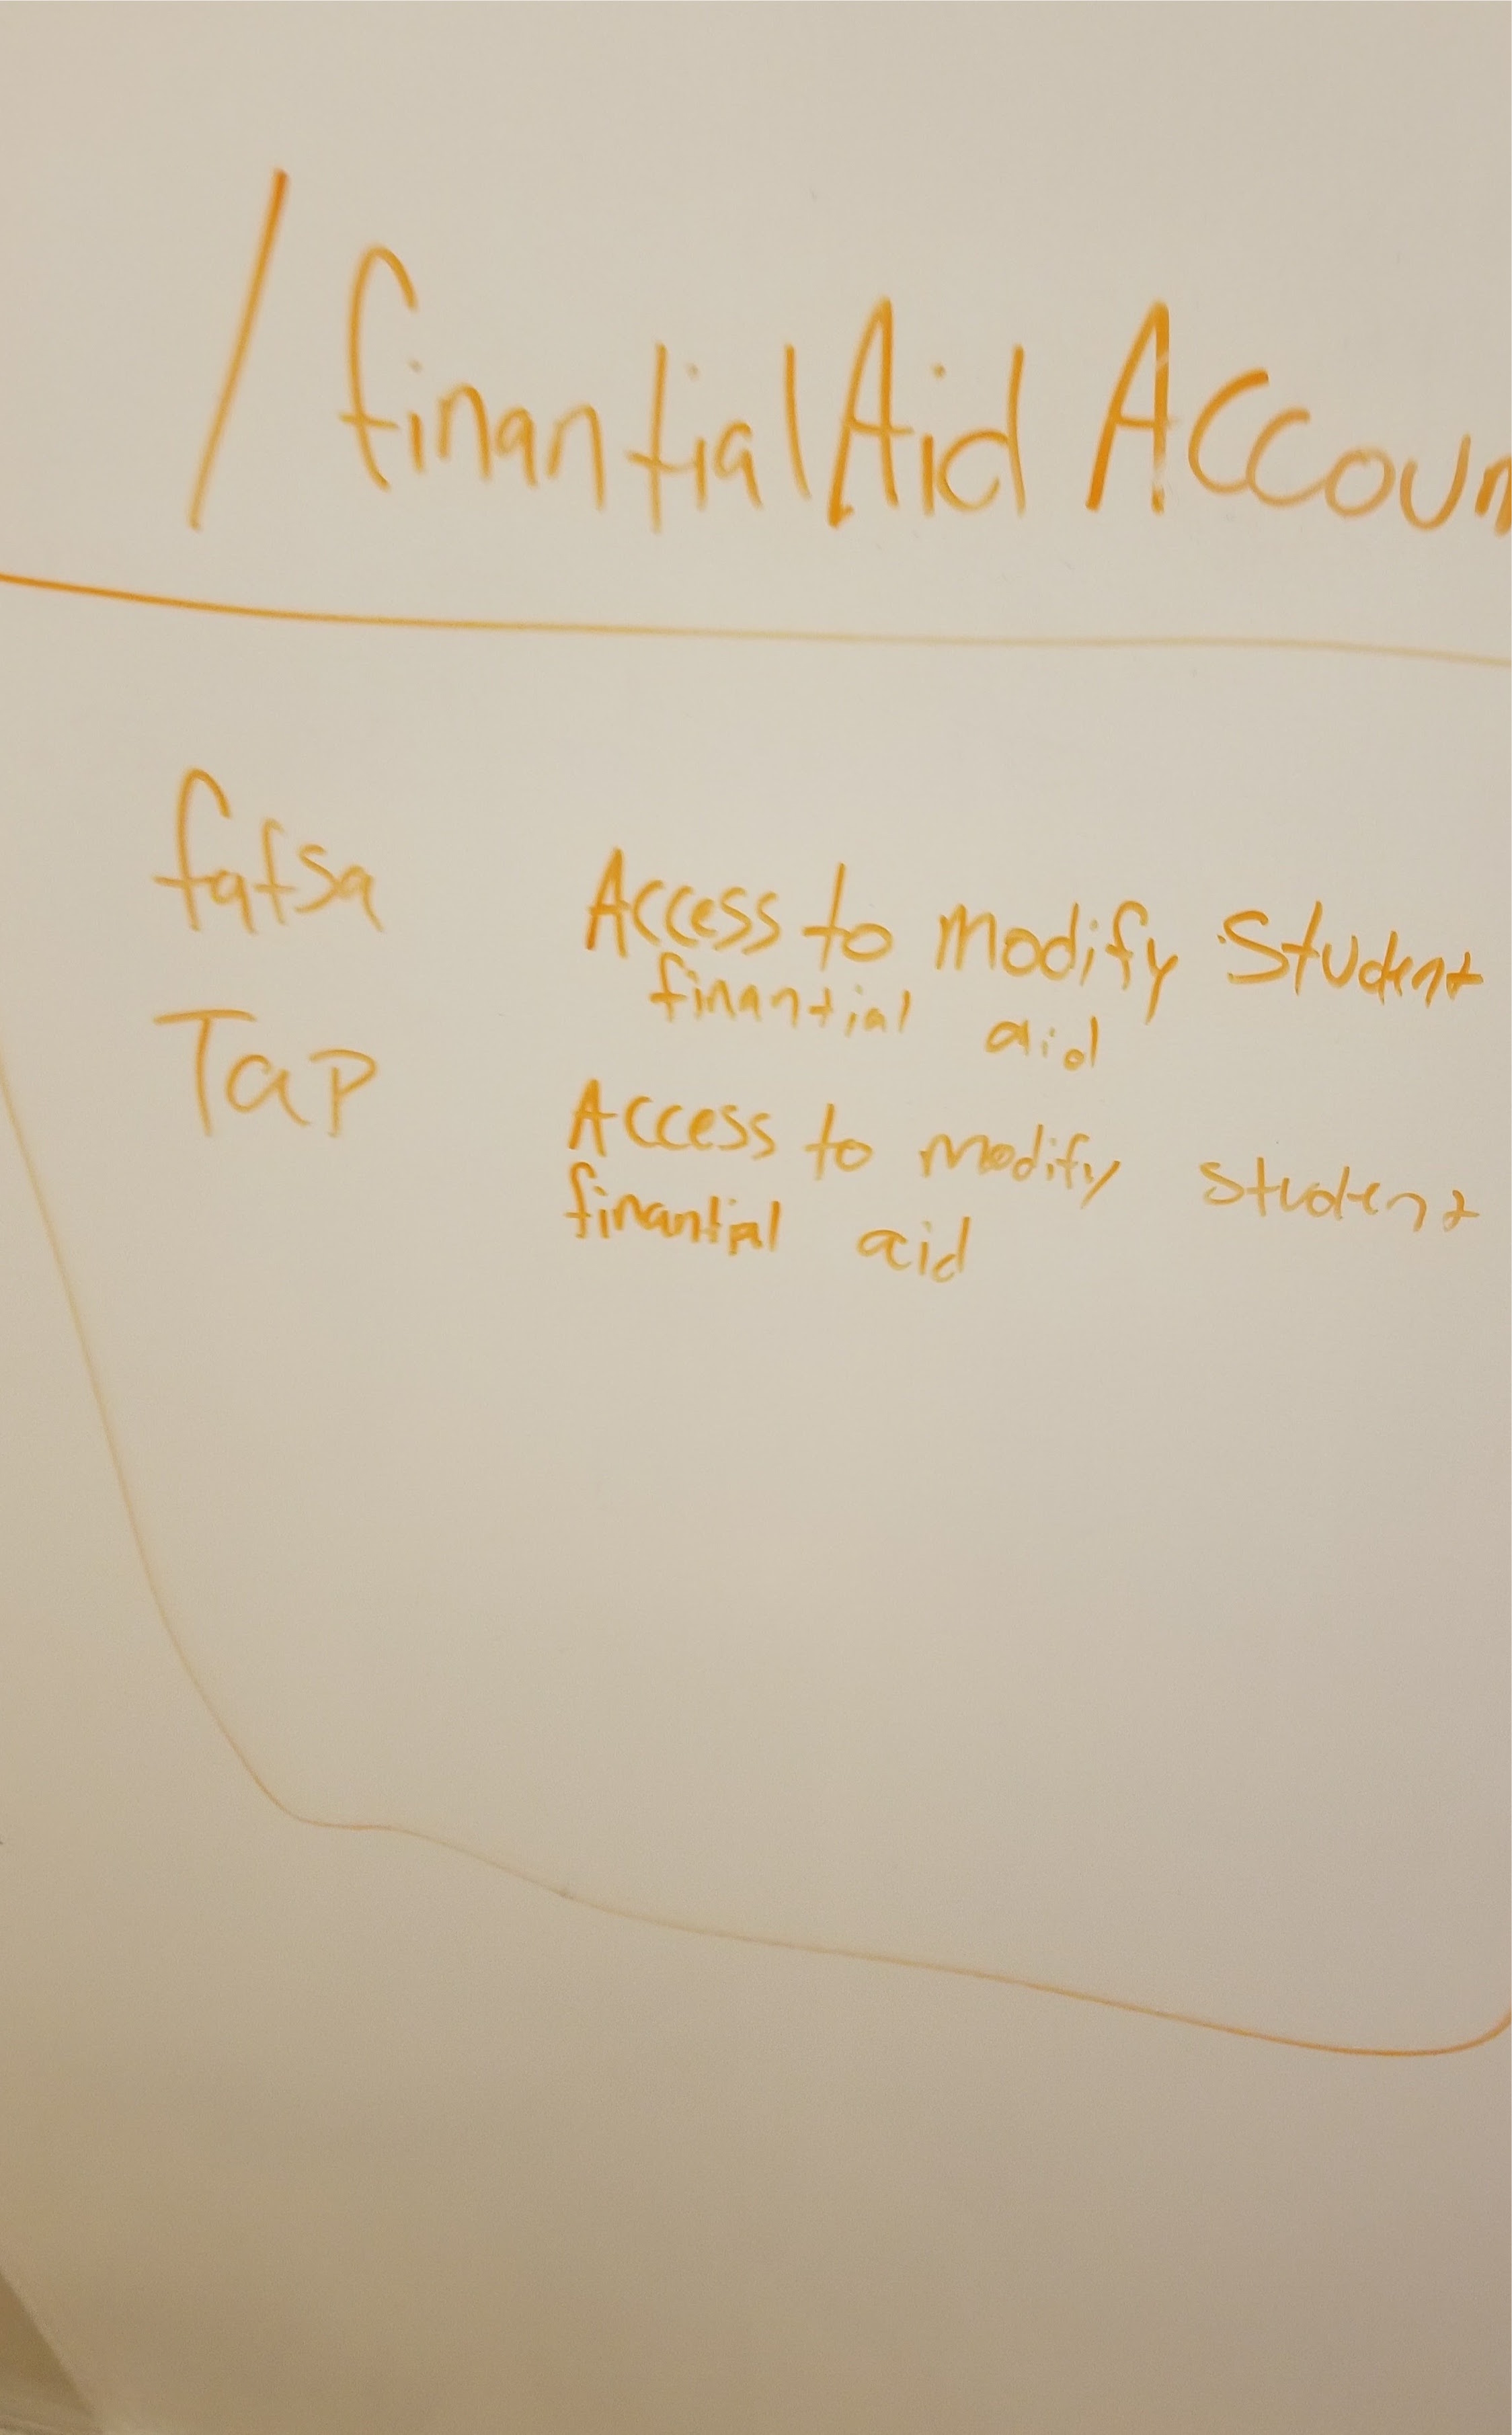 /finantialAid Accoun
fafsa
Access to modify Student
finantial aid
Tap
Access to modify student
finantial aid